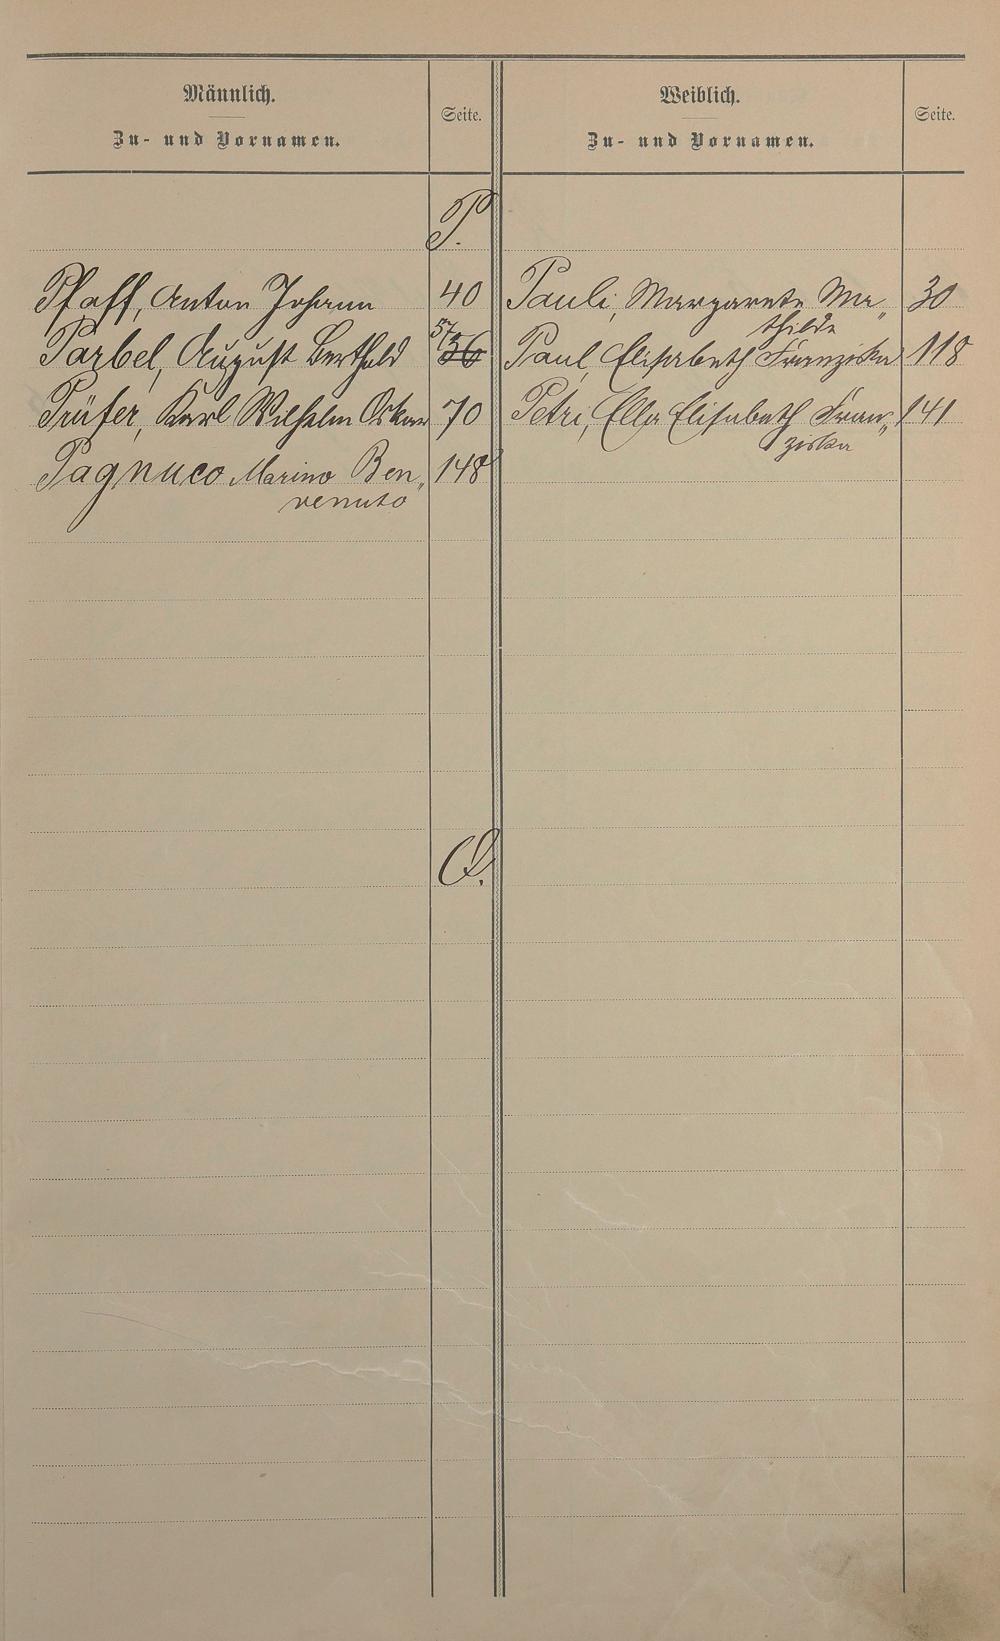 Männlich.
Zu- und Vornamen.
Seite.
Weiblich.
Zu- und Vornamen.
Seite.
P.
Pfaff, Anton Johann 40 Pauli, Margarete Ma„ 30
thilde
57
Parbel, August Berthold 56 Paul, Elisabeth Franziska 118
Prüfer, Karl Wilhelm Oskar 70 Petri, Ella Elisabeth Fran„ 141
ziska
Pagnuco Marino Ben„ 148
venuto
Q.